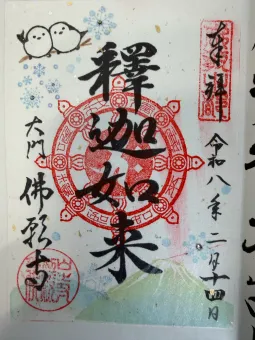 奉拝
令和八年二月十四日
釋迦如来
大門 佛願寺